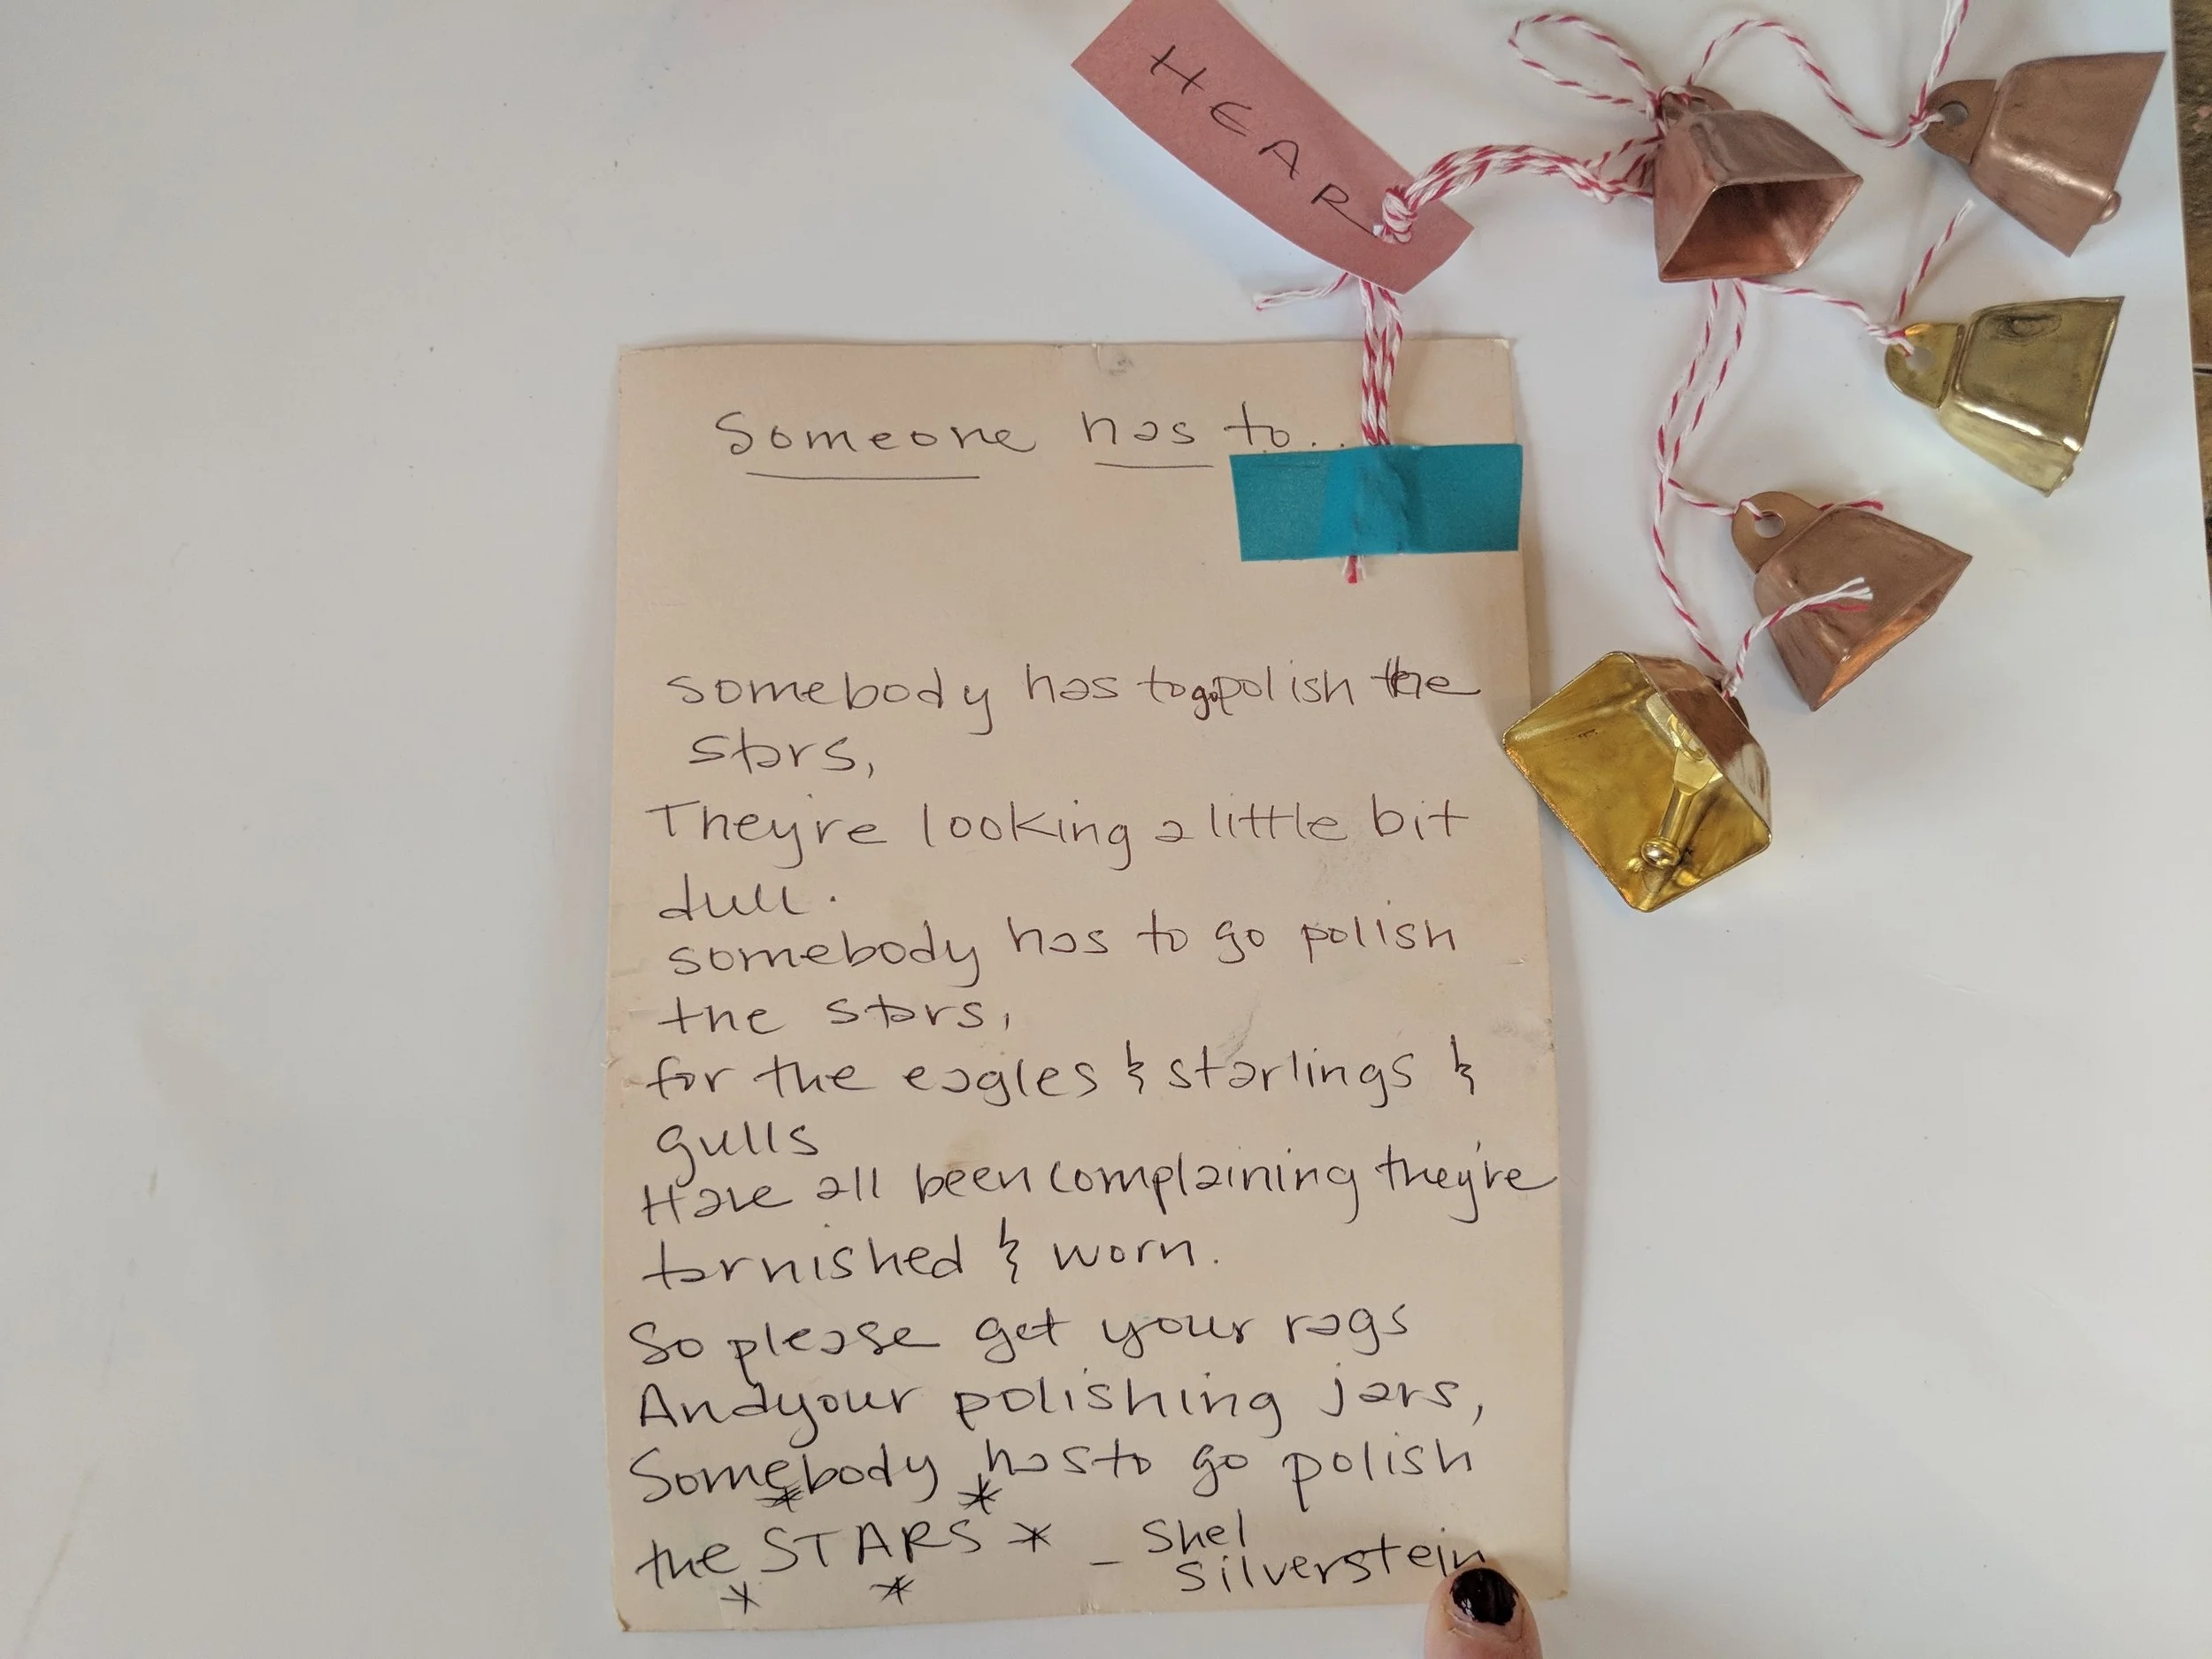 HEAR
Someone has to...
somebody has to go polish the
stars,
They're looking a little bit
dull.
somebody has to go polish
the stars,
for the eagles & starlings &
gulls
Have all been complaining they're
tarnished & worn.
So please get your rags
And your polishing jars,
Somebody has to go polish
the STARS * - Shel
Silverstein